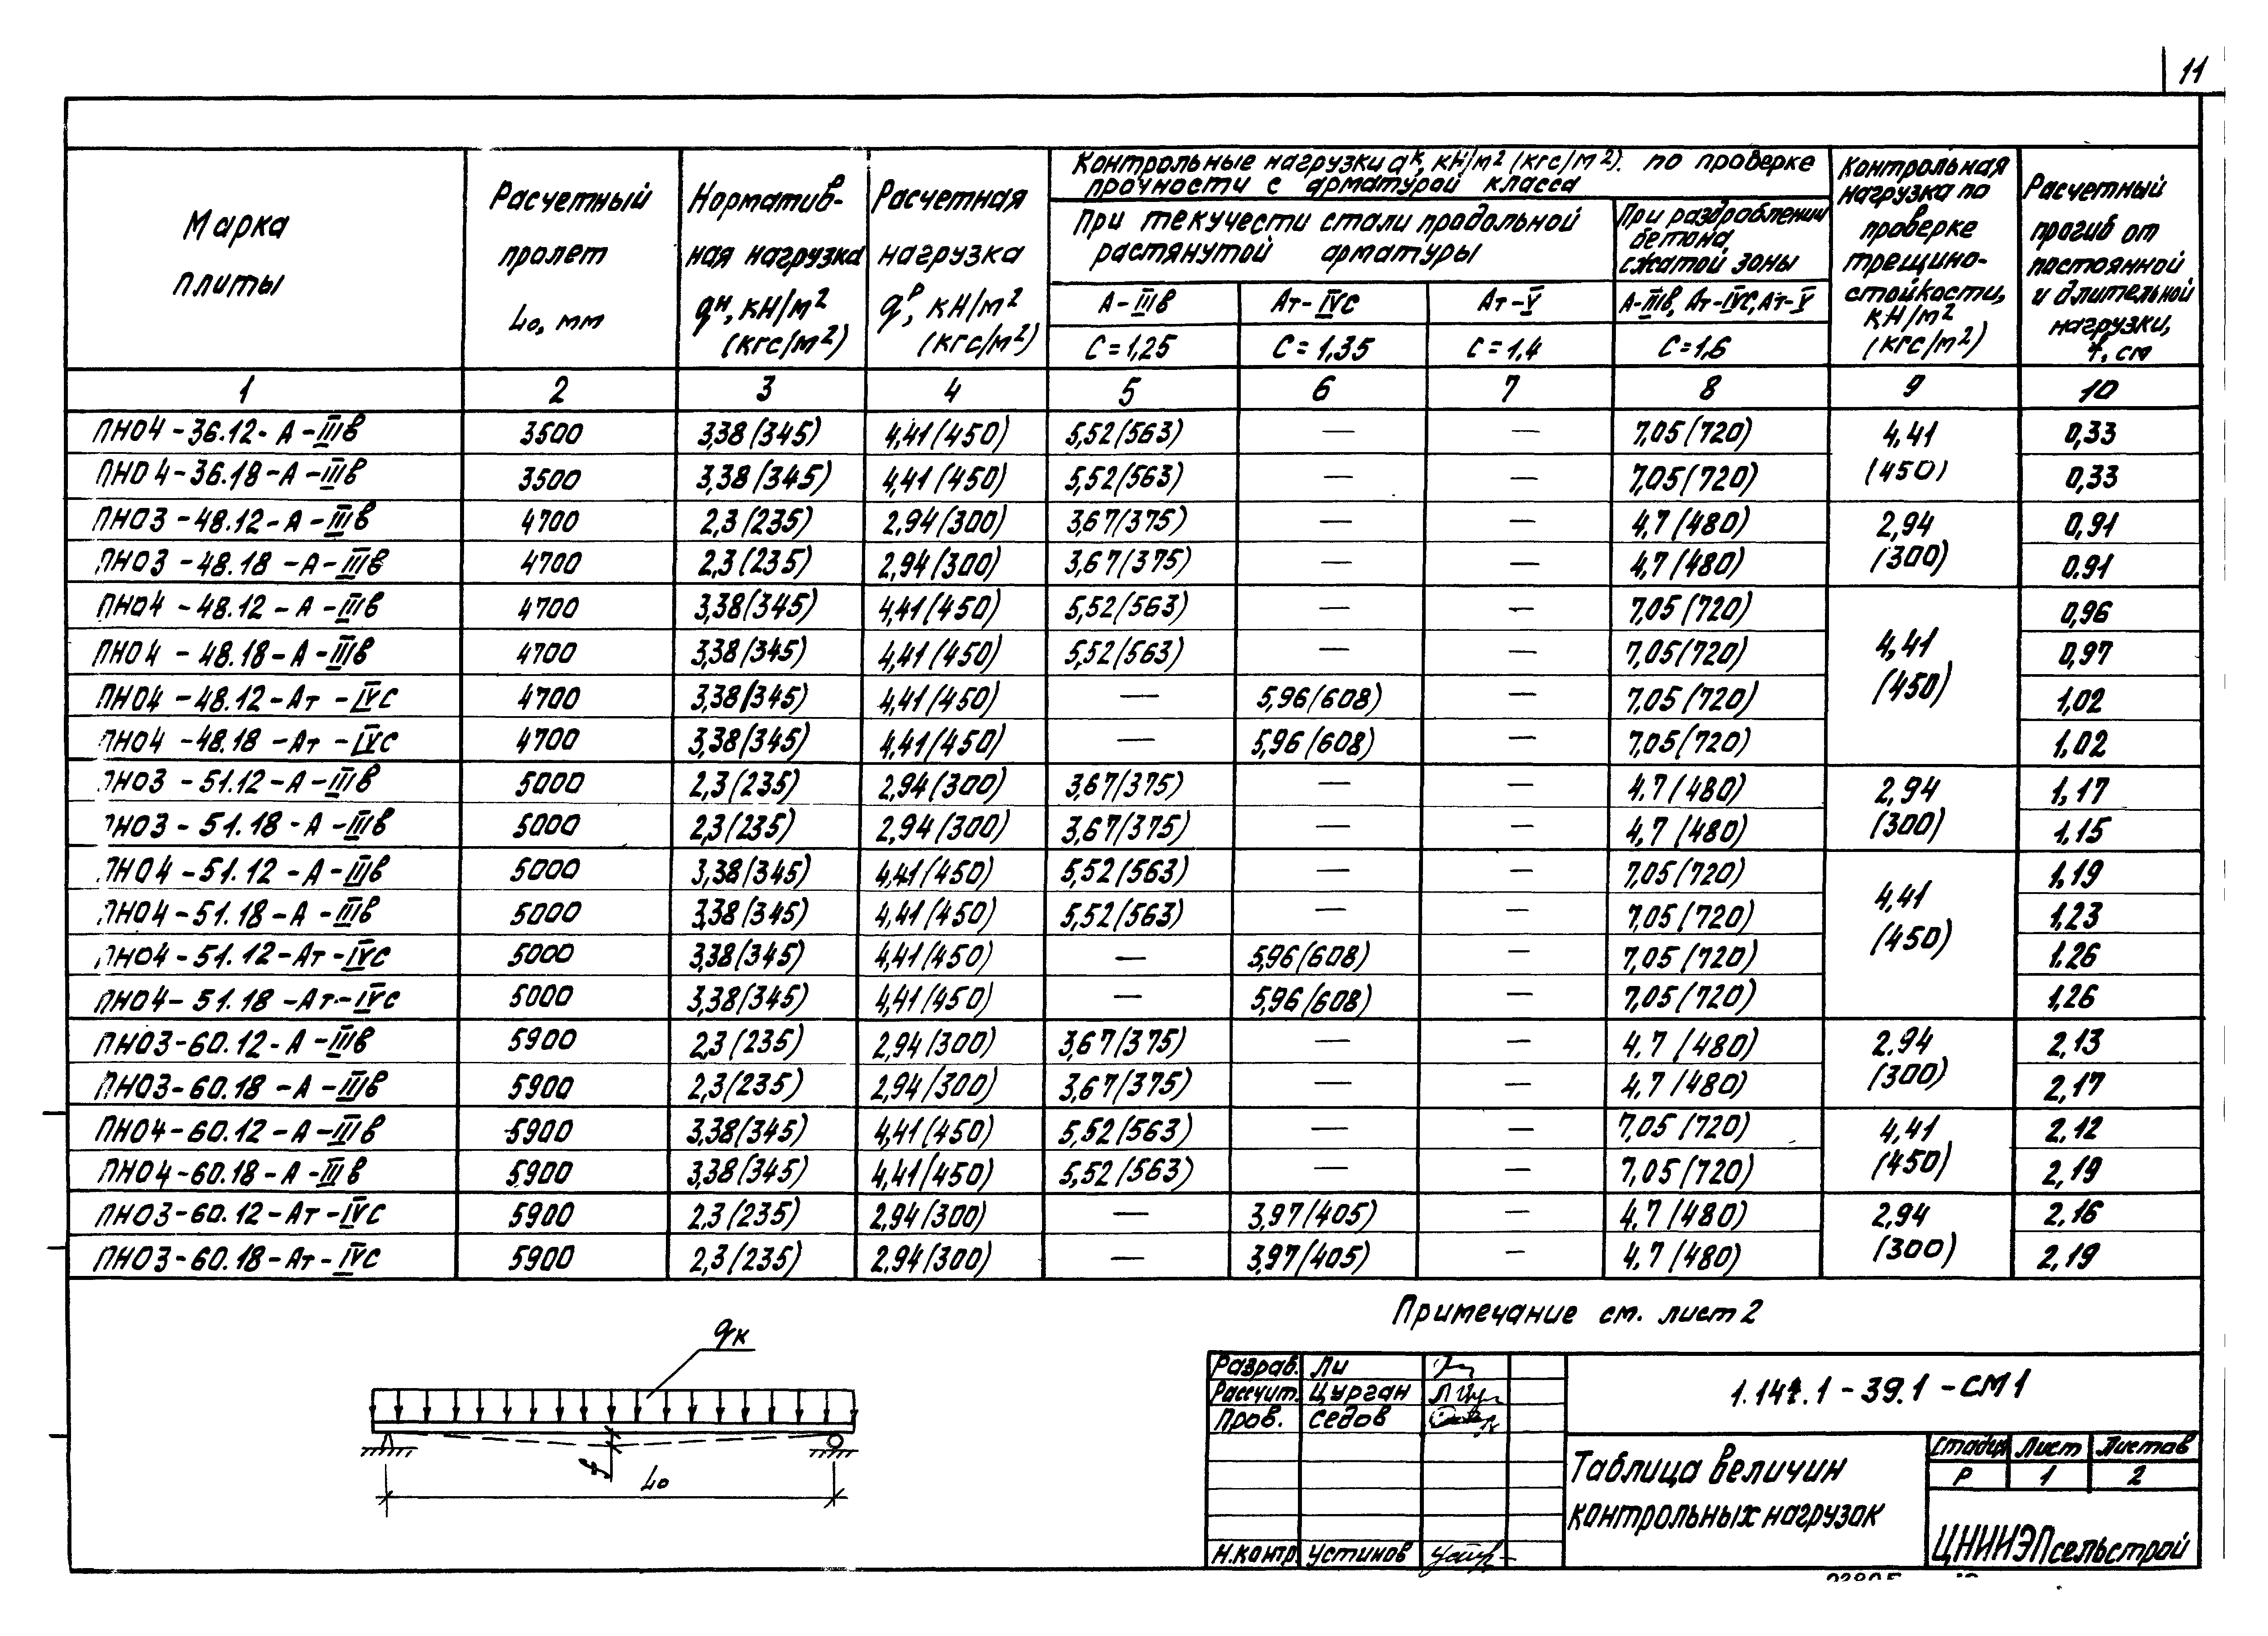 11
Марка плиты
Расчетный пролет L₀, мм
Нормативная нагрузка qᴴ, кН/м² (кгс/м²)
Расчетная нагрузка qᴾ, кН/м² (кгс/м²)
Контрольные нагрузки qᴷ, кН/м² (кгс/м²). по проверке
прочности с арматурой класса
При текучести стали продольной
растянутой арматуры
При раздроблении
бетона
сжатой зоны
А-IIIв Ат-IVС Ат-V А-IIIв, Ат-IVС, Ат-V
С=1,25 С=1,35 С=1,4 С=1,6
Контрольная
нагрузка по
проверке
трещино-
стойкости,
кН/м²
(кгс/м²)
Расчетный
прогиб от
постоянной
и длительной
нагрузки,
f, см
1 2 3 4 5 6 7 8 9 10
ПНО4-36.12-А-IIIв 3500 3,38(345) 4,41(450) 5,52(563) — — 7,05(720) 4,41 0,33
ПНО4-36.18-А-IIIв 3500 3,38(345) 4,41(450) 5,52(563) — — 7,05(720) (450) 0,33
ПНО3-48.12-А-IIIв 4700 2,3(235) 2,94(300) 3,67(375) — — 4,7(480) 2,94 0,91
ПНО3-48.18-А-IIIв 4700 2,3(235) 2,94(300) 3,67(375) — — 4,7(480) (300) 0.91
ПНО4-48.12-А-IIIв 4700 3,38(345) 4,41(450) 5,52(563) — — 7,05(720) 0,96
ПНО4-48.18-А-IIIв 4700 3,38(345) 4,41(450) 5,52(563) — — 7,05(720) 4,41 0,97
ПНО4-48.12-Ат-IVС 4700 3,38(345) 4,41(450) — 5,96(608) — 7,05(720) (450) 1,02
ПНО4-48.18-Ат-IVС 4700 3,38(345) 4,41(450) — 5,96(608) — 7,05(720) 1,02
ПНО3-51.12-А-IIIв 5000 2,3(235) 2,94(300) 3,67(375) — — 4.7(480) 2,94 1,17
ПНО3-51.18-А-IIIв 5000 2,3(235) 2,94(300) 3,67(375) — — 4,7(480) (300) 1,15
ПНО4-51.12-А-IIIв 5000 3,38(345) 4,41(450) 5,52(563) — — 7,05(720) 1,19
ПНО4-51.18-А-IIIв 5000 3,38(345) 4,41(450) 5,52(563) — — 7,05(720) 4,41 1,23
ПНО4-51.12-Ат-IVС 5000 3,38(345) 4,41(450) — 5,96(608) — 7,05(720) (450) 1.26
ПНО4-51.18-Ат-IVС 5000 3,38(345) 4,41(450) — 5,96(608) — 7,05(720) 1,26
ПНО3-60.12-А-IIIв 5900 2,3(235) 2,94(300) 3,67(375) — — 4.7(480) 2.94 2,13
ПНО3-60.18-А-IIIв 5900 2,3(235) 2,94(300) 3,67(375) — — 4,7(480) (300) 2,17
ПНО4-60.12-А-IIIв 5900 3,38(345) 4,41(450) 5,52(563) — — 7,05(720) 4,41 2,12
ПНО4-60.18-А-IIIв 5900 3,38(345) 4,41(450) 5,52(563) — — 7,05(720) (450) 2,19
ПНО3-60.12-Ат-IVС 5900 2,3(235) 2,94(300) — 3,97(405) — 4,7(480) 2,94 2,16
ПНО3-60.18-Ат-IVС 5900 2,3(235) 2.94(300) — 3,97(405) — 4,7(480) (300) 2,19
Примечание см. лист 2
qк
f
L₀
Разраб. Ли
Рассчит. Цурган
Пров. Седов
Н.контр. Устинов
1.141.1-39.1-СМ1
Таблица величин
контрольных нагрузок
Стадия Лист Листов
Р 1 2
ЦНИИЭПсельстрой